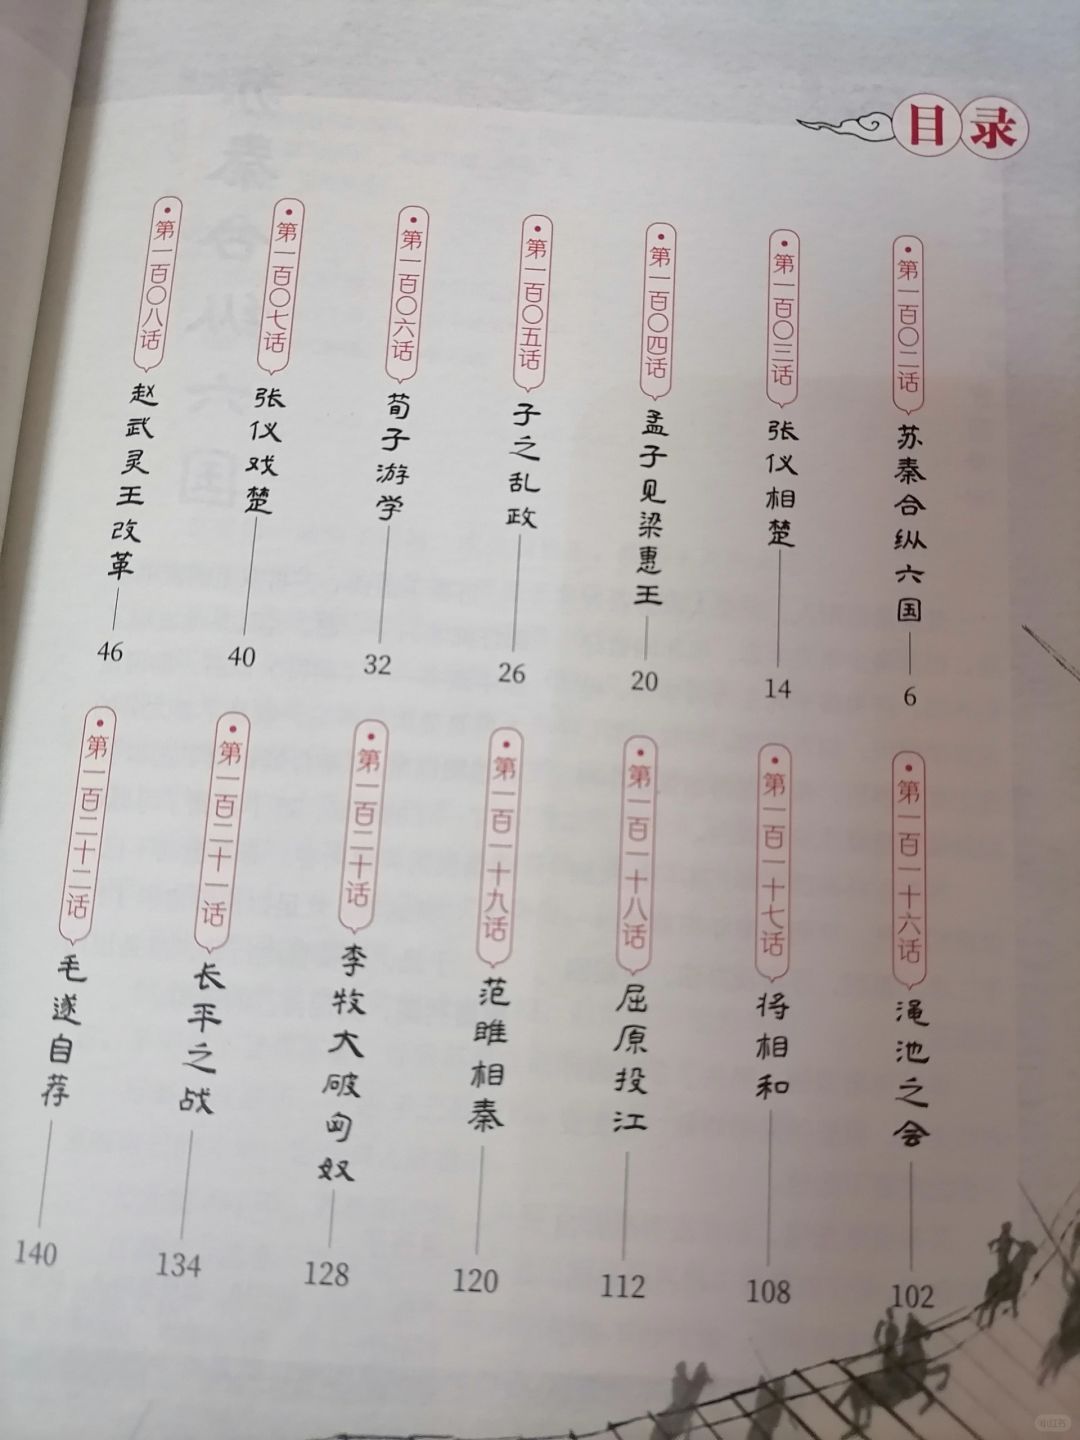 目录
第一百〇二话
苏秦合纵六国
6
第一百〇三话
张仪相楚
14
第一百〇四话
孟子见梁惠王
20
第一百〇五话
子之乱政
26
第一百〇六话
荀子游学
32
第一百〇七话
张仪戏楚
40
第一百〇八话
赵武灵王改革
46
第一百一十六话
渑池之会
102
第一百一十七话
将相和
108
第一百一十八话
屈原投江
112
第一百一十九话
范雎相秦
120
第一百二十话
李牧大破匈奴
128
第一百二十一话
长平之战
134
第一百二十二话
毛遂自荐
140
小红书